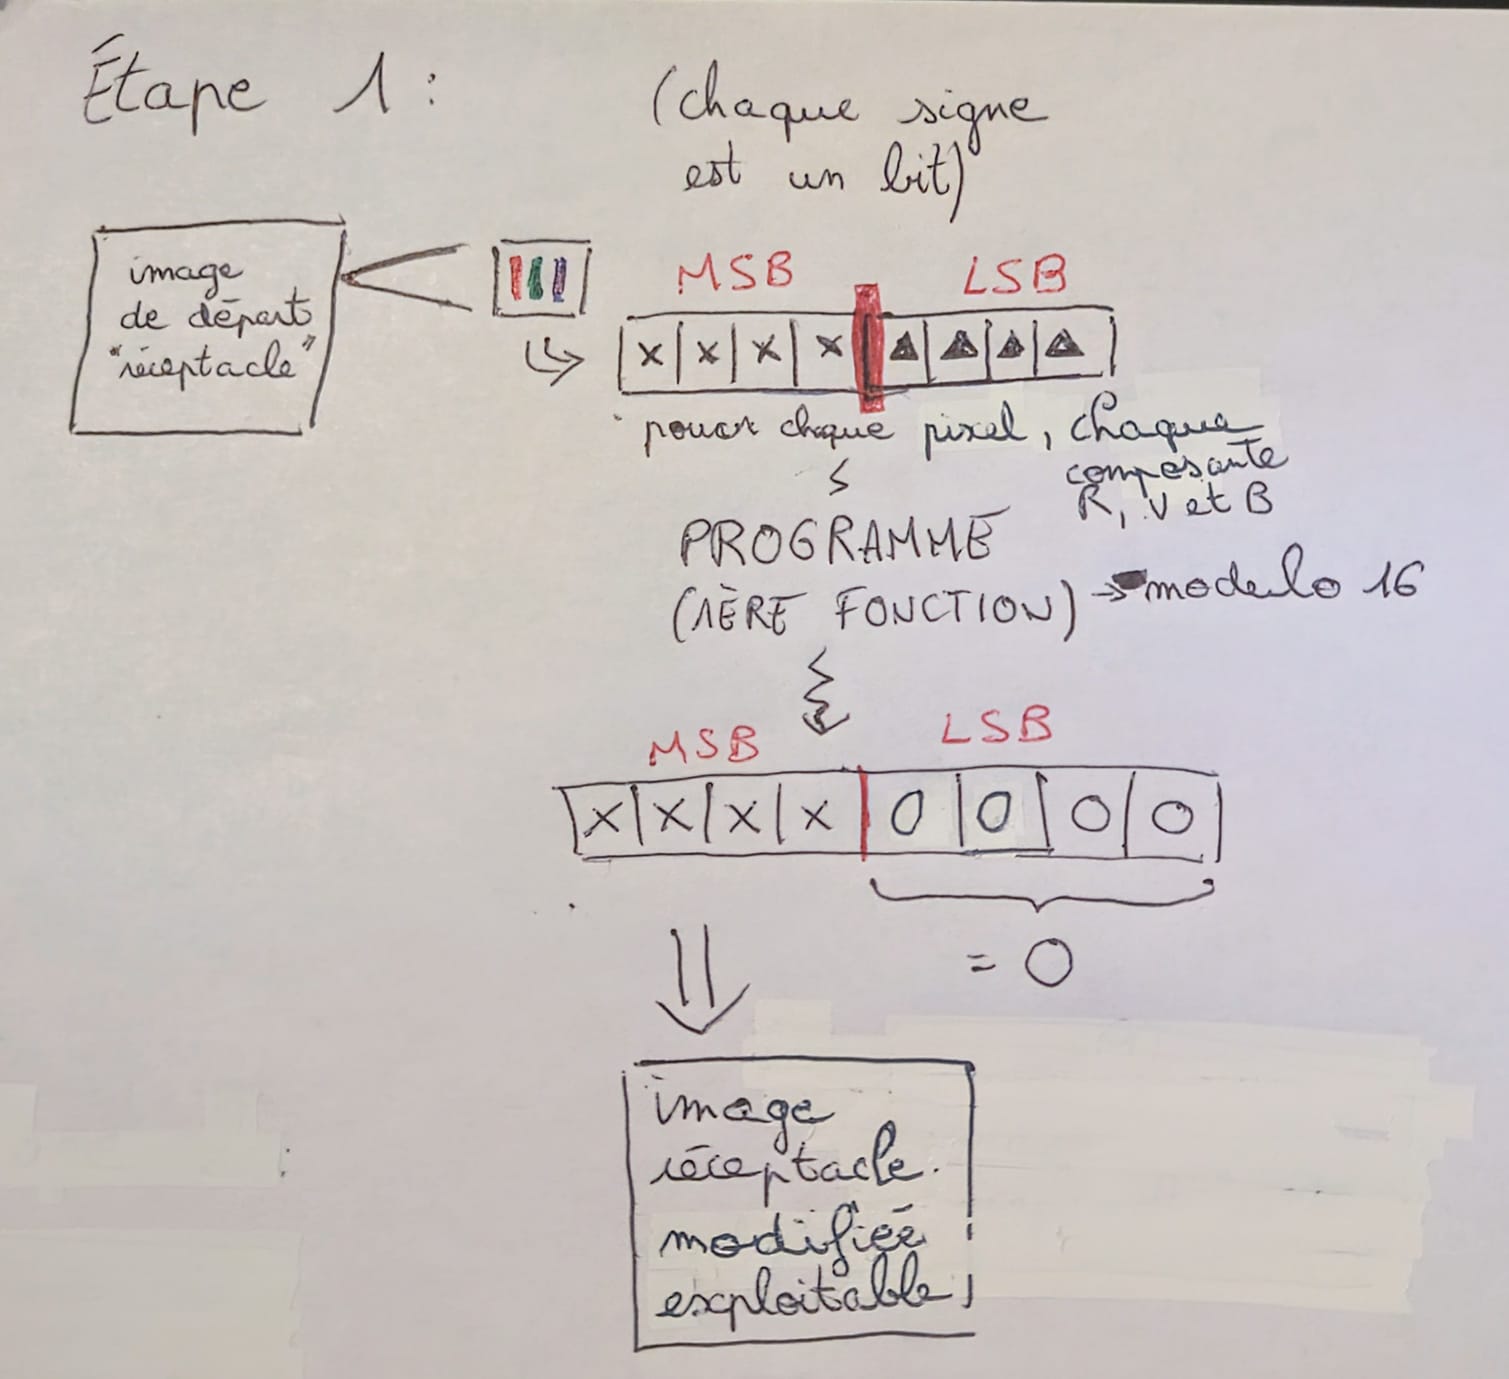 Étape 1 :
(chaque signe
est un bit)
image
de départ
"réceptacle"
MSB LSB
x x x x
pour chaque pixel, chaque
composante
R, V et B
PROGRAMME
(1ÈRE FONCTION) → modulo 16
MSB LSB
x x x x 0 0 0 0
= 0
image
réceptacle.
modifiée
exploitable